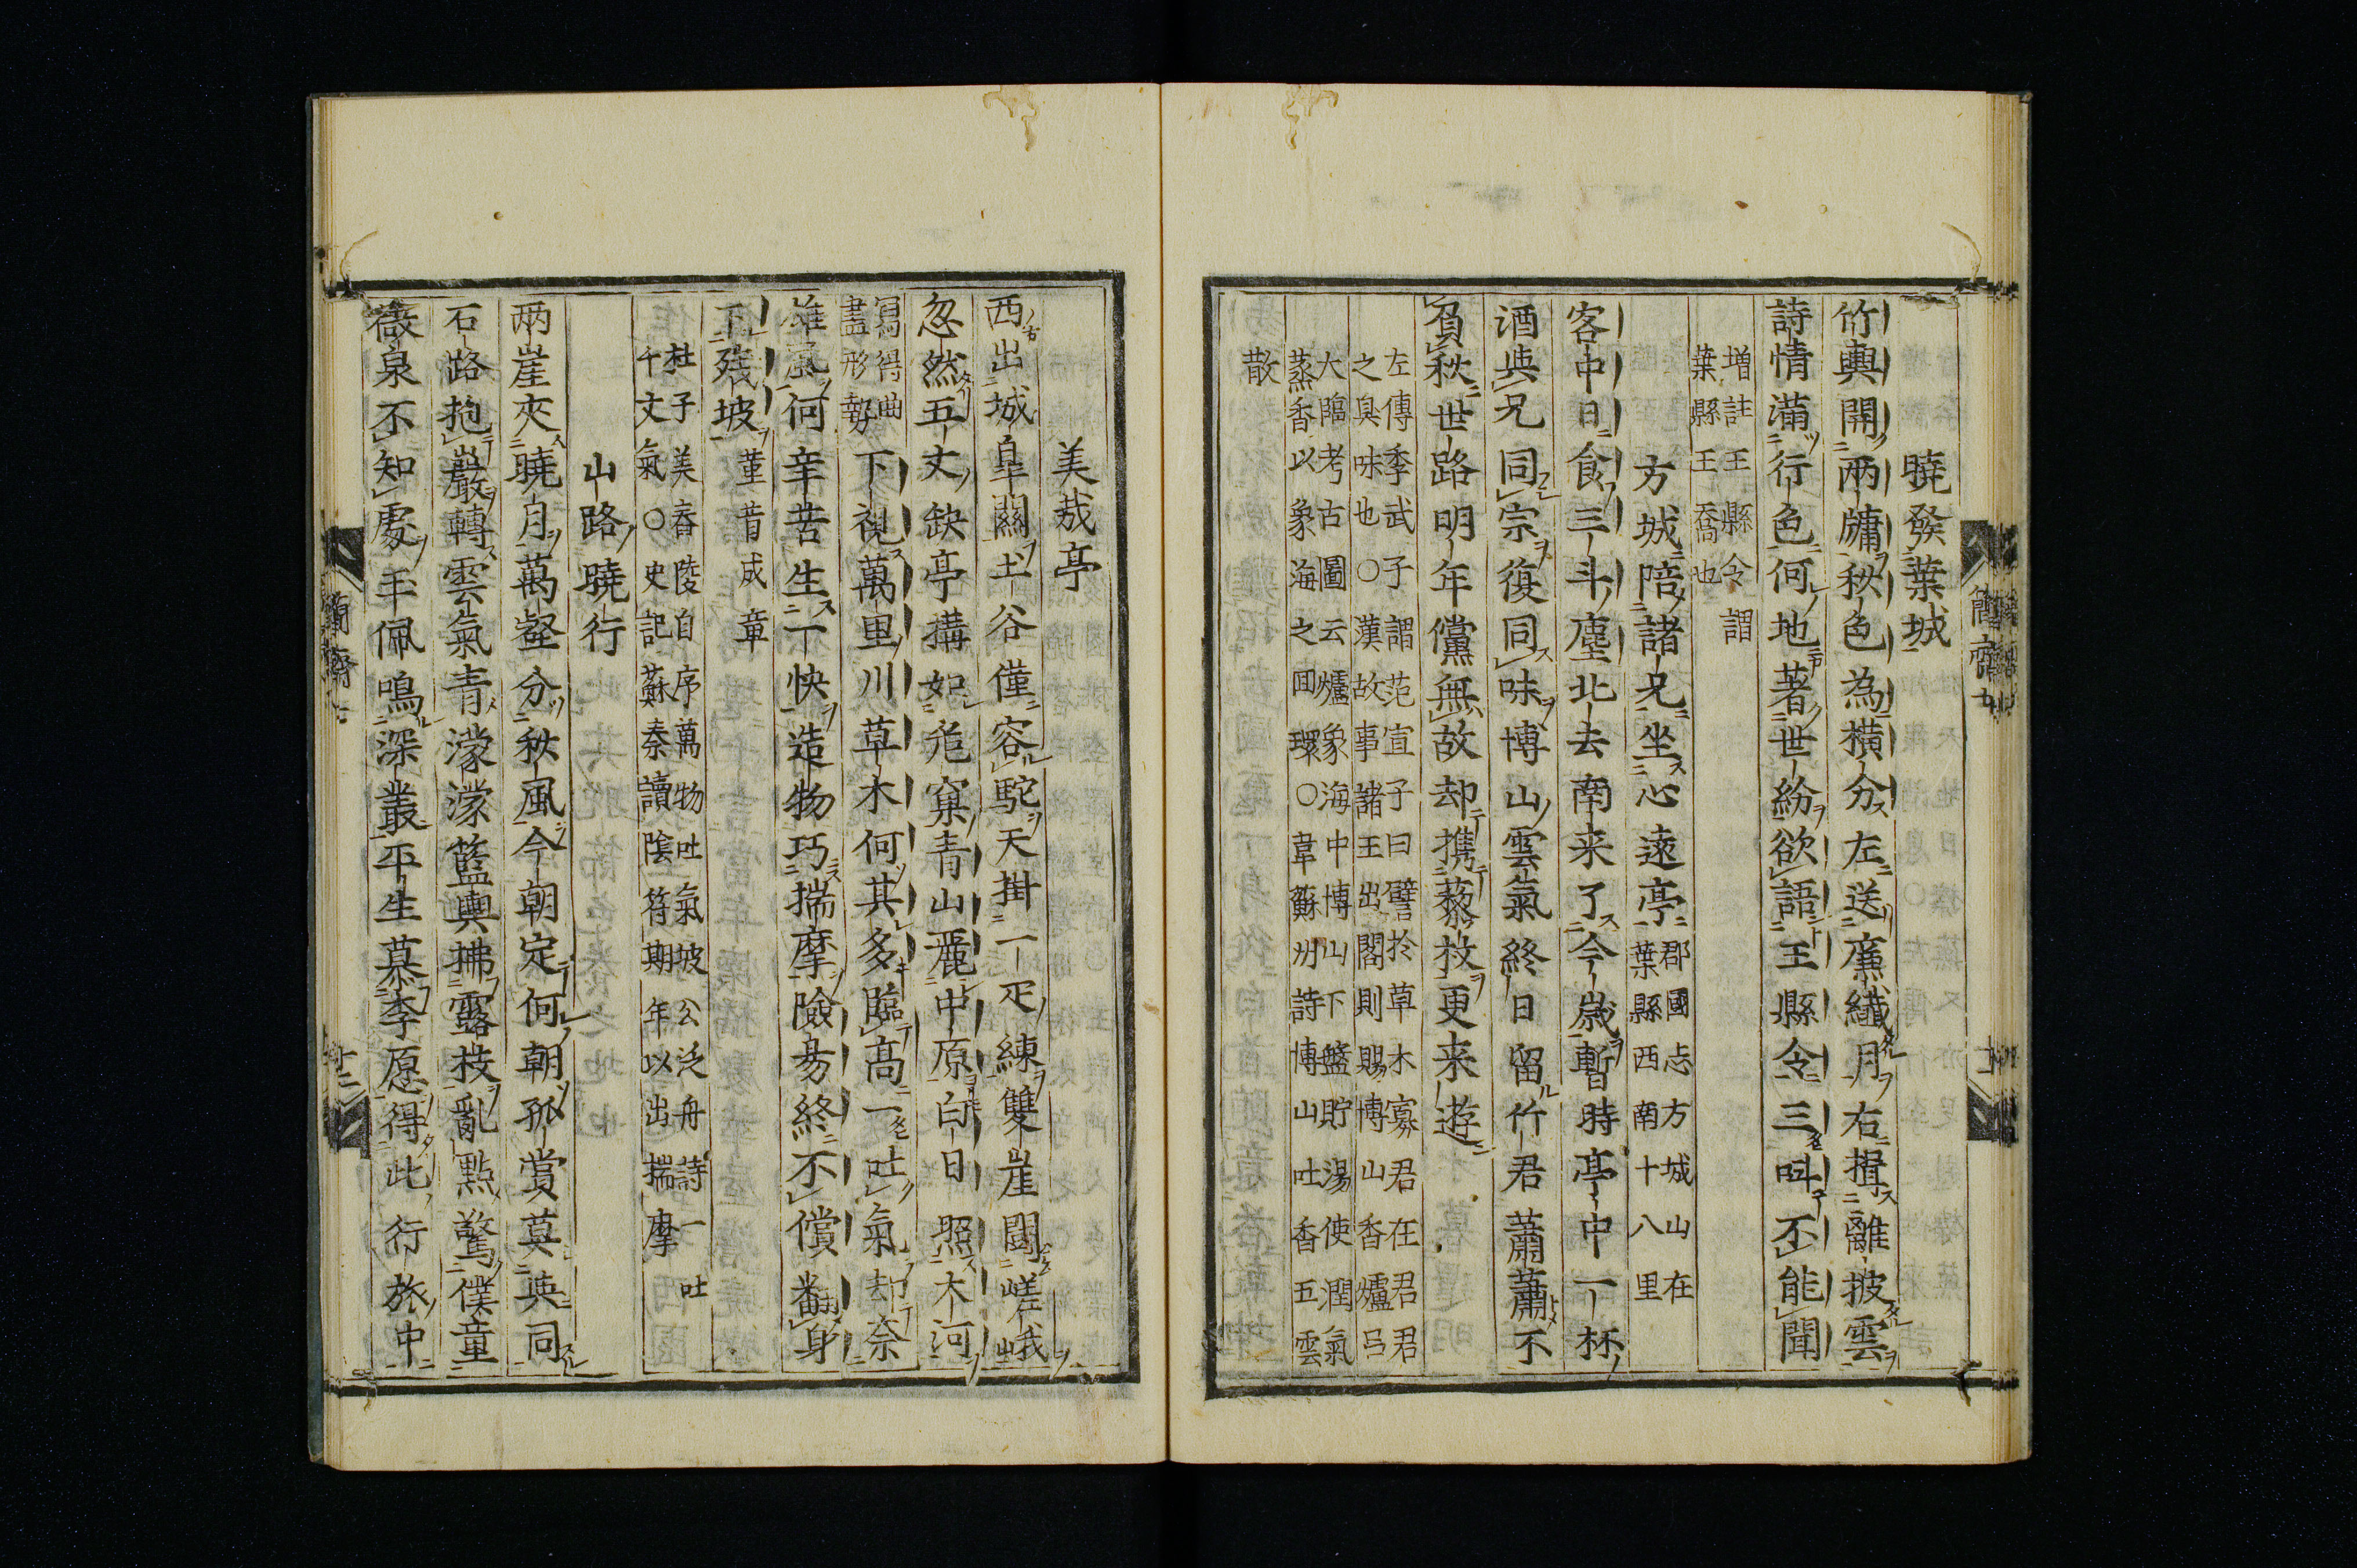 曉發葉城
竹輿開兩牗秋色為橫分左送廉纎月右揖離披雲
詩情滿行色何地著世紛欲語王縣令三呌不能聞
増註王縣令謂
葉縣王喬也
方城陪諸兄坐心遠亭
郡國志方城山在
葉縣西南十八里
客中日食三斗塵北去南来了今歳暫時亭中一杯
酒與兄同宗復同味博山雲氣終日留竹君蕭蕭不
負秋世路明年儻無故却携藜杖更来遊
左傳季武子謂范宣子曰譬於草木寡君在君君
之臭味也○漢故事諸王出閣則賜博山香爐吕
大臨考古圖云爐象海中博山下盤貯湯使潤氣
蒸香以象海之囬環○韋蘇州詩博山吐香五雲
散
美哉亭
西出城皐關土谷僅容駝天掛一疋練雙崖闘嵯峨
忽然五丈缺亭搆如危窠青山麗中原白日照大河
寫得曲
盡形勢
下視萬里川草木何其多臨高一吐氣却奈
雄風何辛苦生一快造物巧揣摩險易終不償翻身
下殘坡
董昔成章
杜子美舂陵自序萬物吐氣坡公泛舟詩一吐
千丈氣○史記蘇秦讀陰符期年以出揣摩
山路曉行
兩崖夾曉月萬壑分秋風今朝定何朝孤賞莫與同
石路抱巖轉雲氣青濛濛籃輿拂露枝亂點驚僕童
微泉不知處玉佩鳴深叢平生慕李愿得此行旅中
簡齋
十二